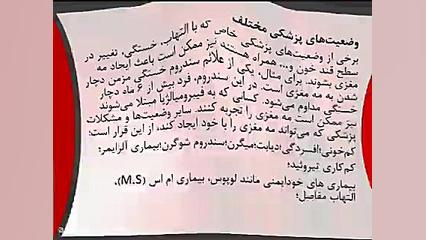 وضعیت‌های پزشکی مختلف
برخی از وضعیت‌های پزشکی خاص که با التهاب، خستگی، تغییر در
سطح قند خون و... همراه هستند نیز ممکن است باعث ایجاد مه
مغزی بشوند. برای مثال، یکی از علائم سندروم خستگی مزمن دچار
شدن به مه مغزی است. در این سندروم، فرد بیش از ۶ ماه دچار
خستگی مداوم می‌شود. کسانی که به فیبرومیالژیا مبتلا می‌شوند
نیز ممکن است مه مغزی را تجربه کنند. سایر وضعیت‌ها و مشکلات
پزشکی که می‌تواند مه مغزی را با خود ایجاد کند، از این قرار است:
کم‌خونی؛افسردگی؛دیابت؛میگرن؛سندروم شوگرن؛بیماری آلزایمر:
کم‌کاری تیروئید؛
بیماری های خودایمنی مانند لوپوس، بیماری ام اس (M.S)،
التهاب مفاصل؛